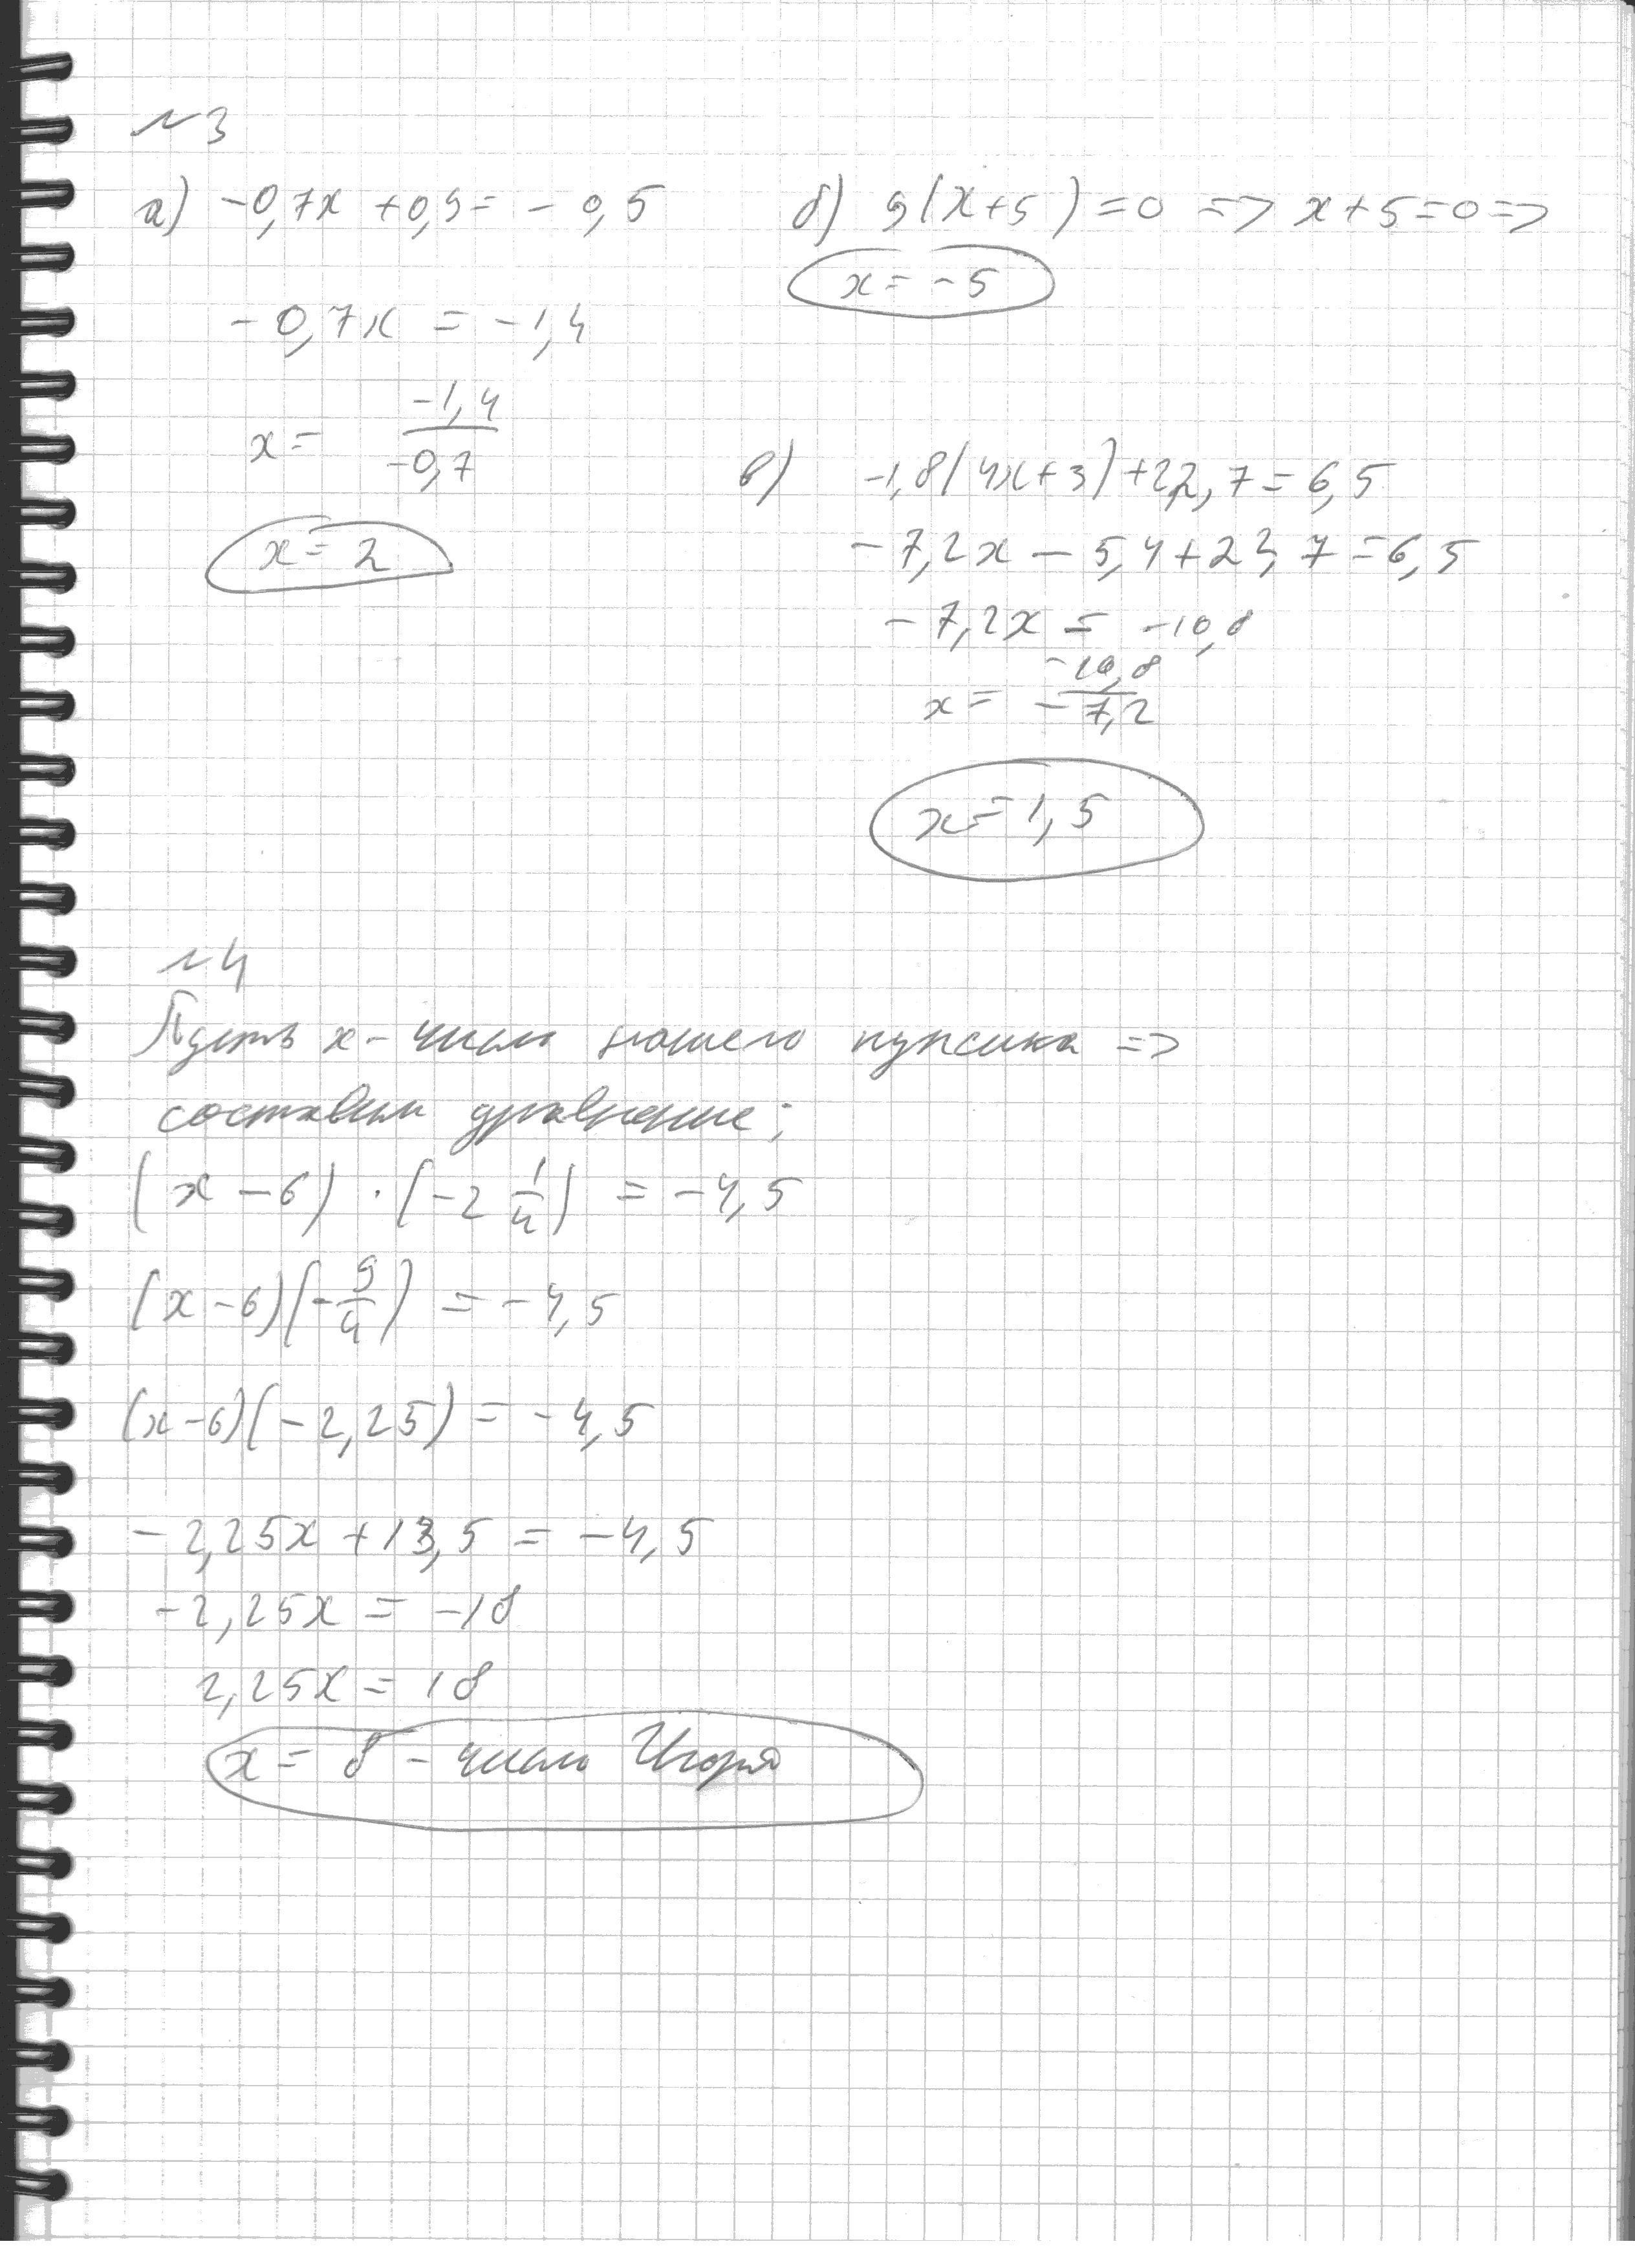 №3
а) -0,7x + 0,9 = - 0,5
-0,7x = -1,4
x = -1,4/-0,7
x = 2
б) 9(x+5) = 0 => x+5=0 =>
x = -5
в) -1,8(4x+3)+22,7=6,5
-7,2x - 5,4+22,7=6,5
-7,2x = -10,8
x = -10,8/-7,2
x = 1,5
№4
Пусть x - число нашего пупсика =>
составим уравнение:
(x - 6) · (-2 1/4) = -4,5
(x-6)(-9/4) = -4,5
(x-6)(-2,25) = -4,5
-2,25x + 13,5 = -4,5
-2,25x = -18
2,25x = 18
x = 8 - число Игоря